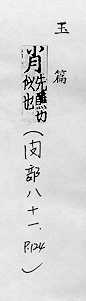 玉篇
肖先醮切
似也(肉部八十一、P.124)